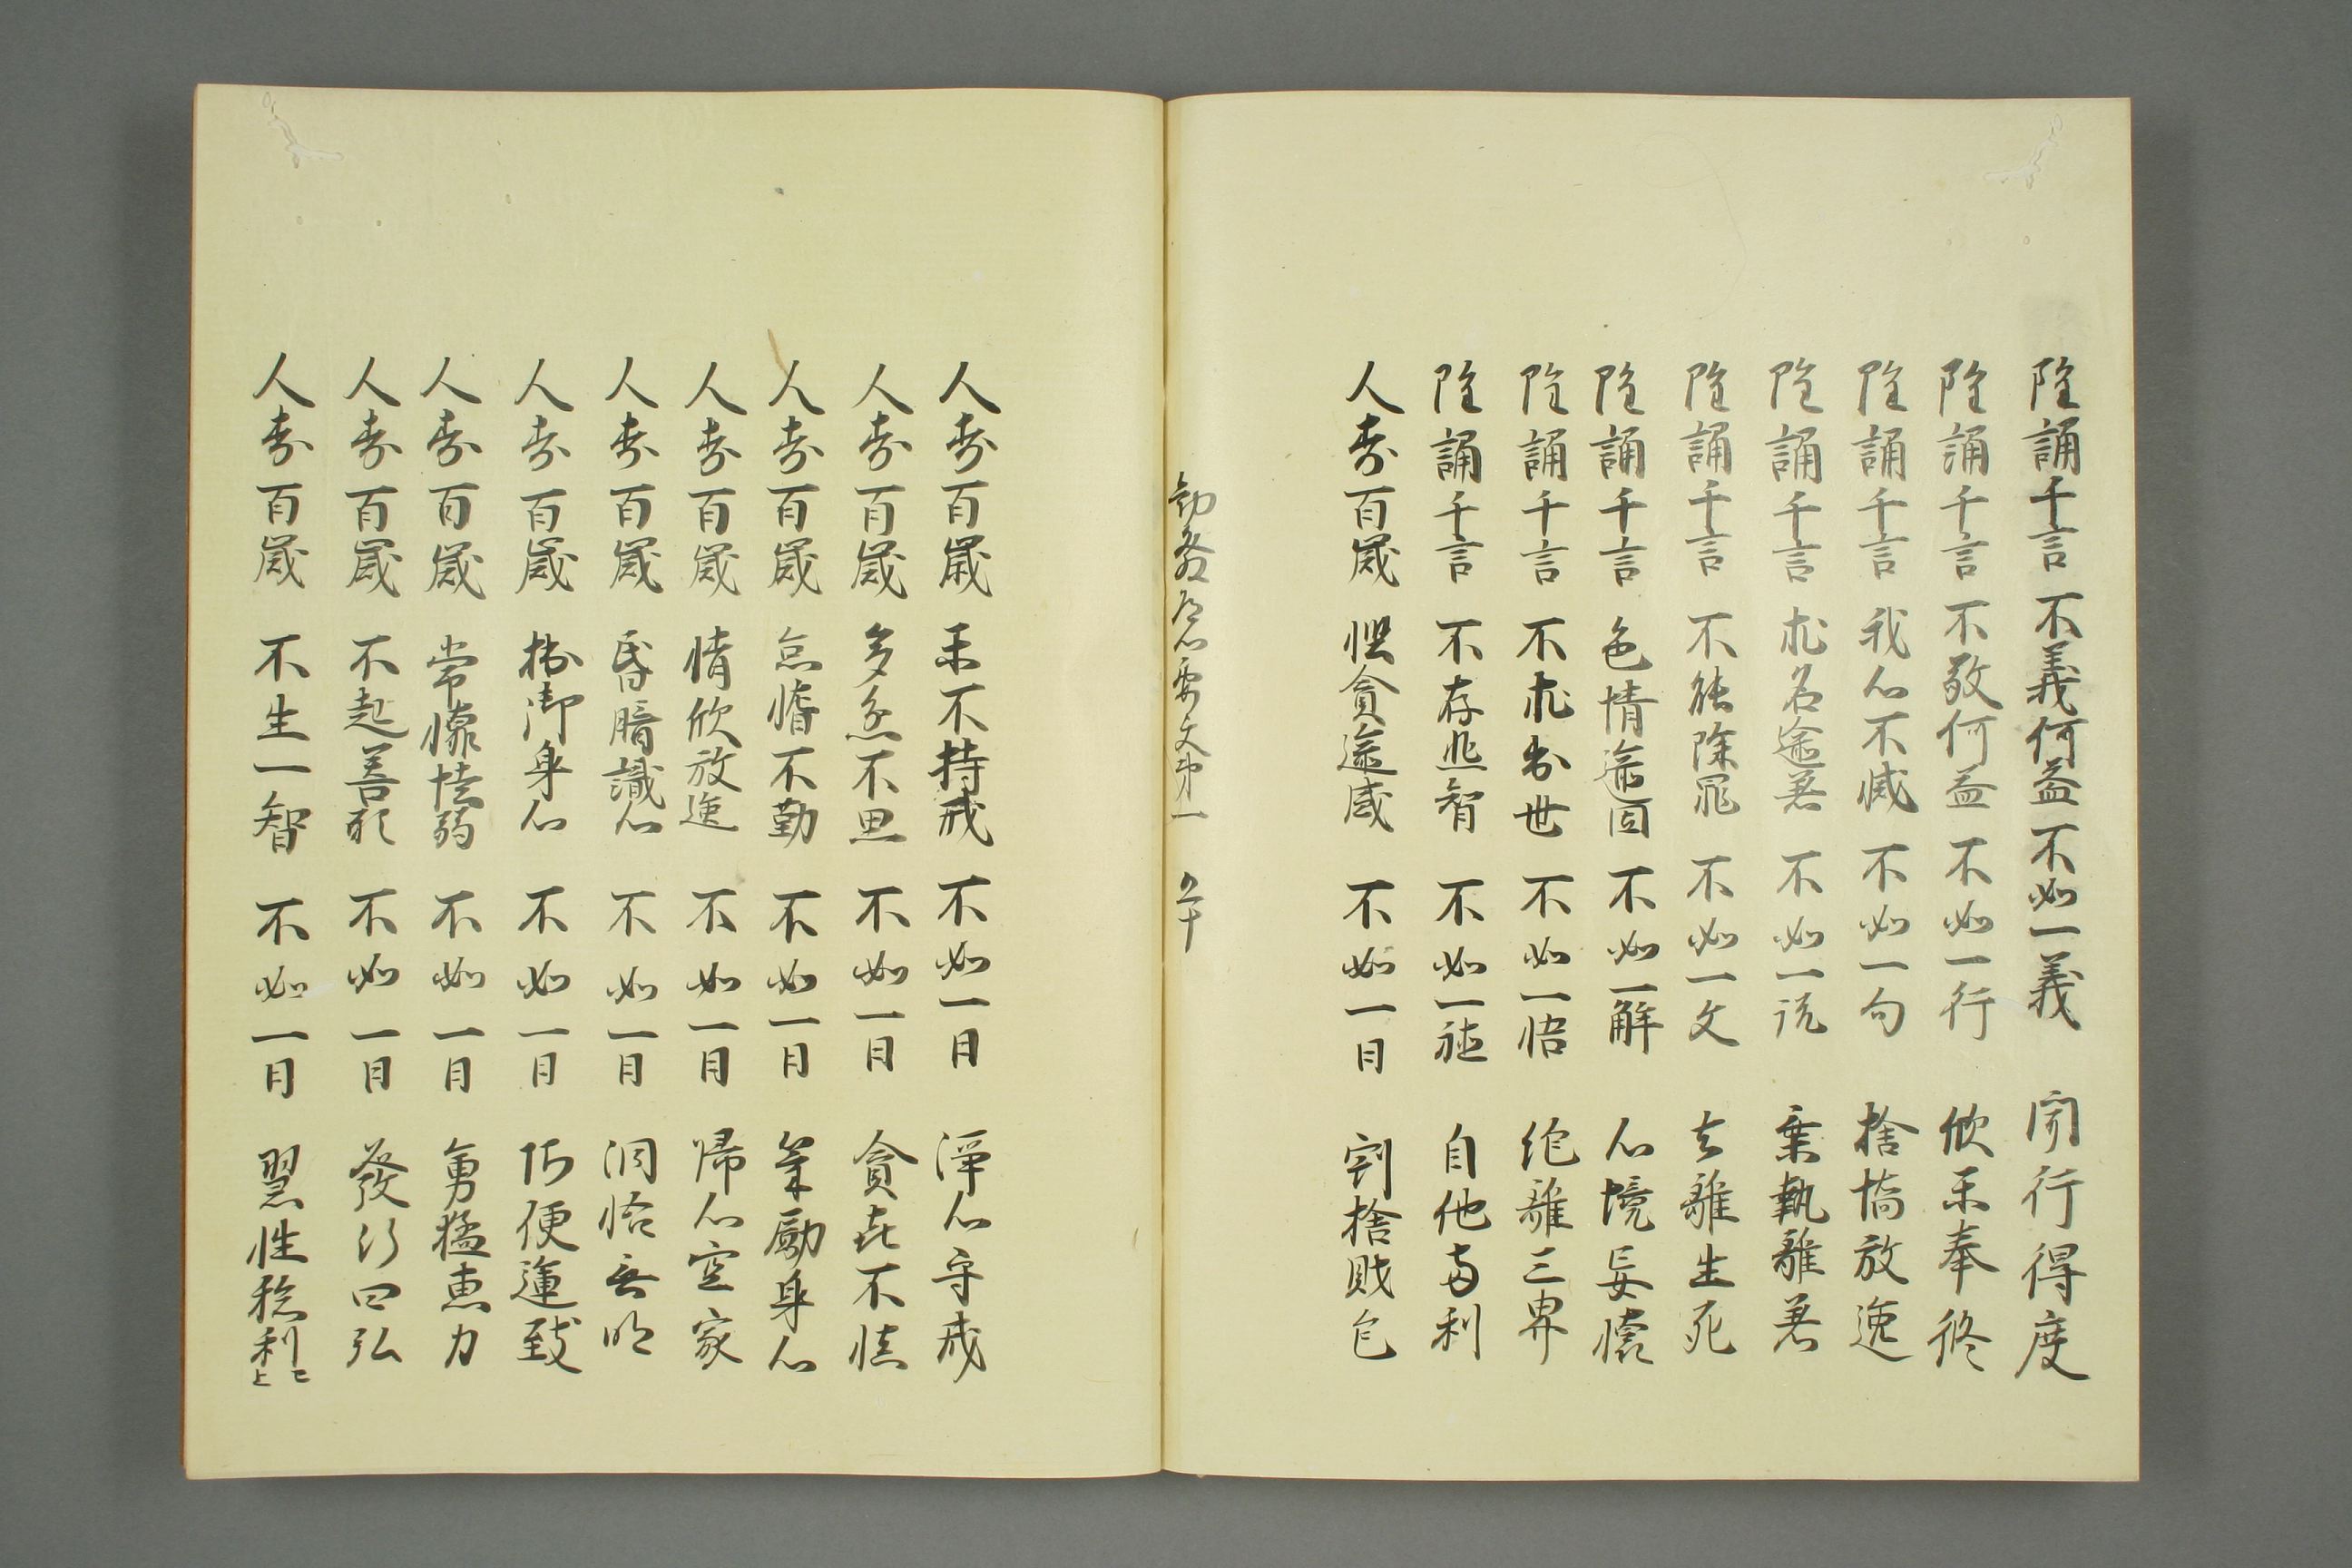 雖誦千言 不義何益 不如一義 聞行得度
雖誦千言 不敬何益 不如一行 欣樂奉修
雖誦千言 我心不滅 不如一句 捨憍放逸
雖誦千言 求名逾著 不如一說 棄執離著
雖誦千言 不能除罪 不如一文 去離生死
雖誦千言 色情逾固 不如一解 心境妄懷
雖誦千言 不求出世 不如一悟 絕離三界
雖誦千言 不存悲智 不如一 自他兩利
人壽百歲 慳貪逾盛 不如一日 割捨賑
勸發 要文第一
人壽百歲 樂不持戒 不如一日 淨心守戒
人壽百歲 多恚不思 不如一日 貪 不
人壽百歲 怠惰不勤 不如一日 策勵身心
人壽百歲 情欣放逸 不如一日 歸心空家
人壽百歲 昏暗識心 不如一日 洞悟無明
人壽百歲 御身心 不如一日 巧便運致
人壽百歲 常懷怯弱 不如一日 勇猛惠力
人壽百歲 不起善 不如一日 發行四弘
人壽百歲 不生一智 不如一日 習性 利已上